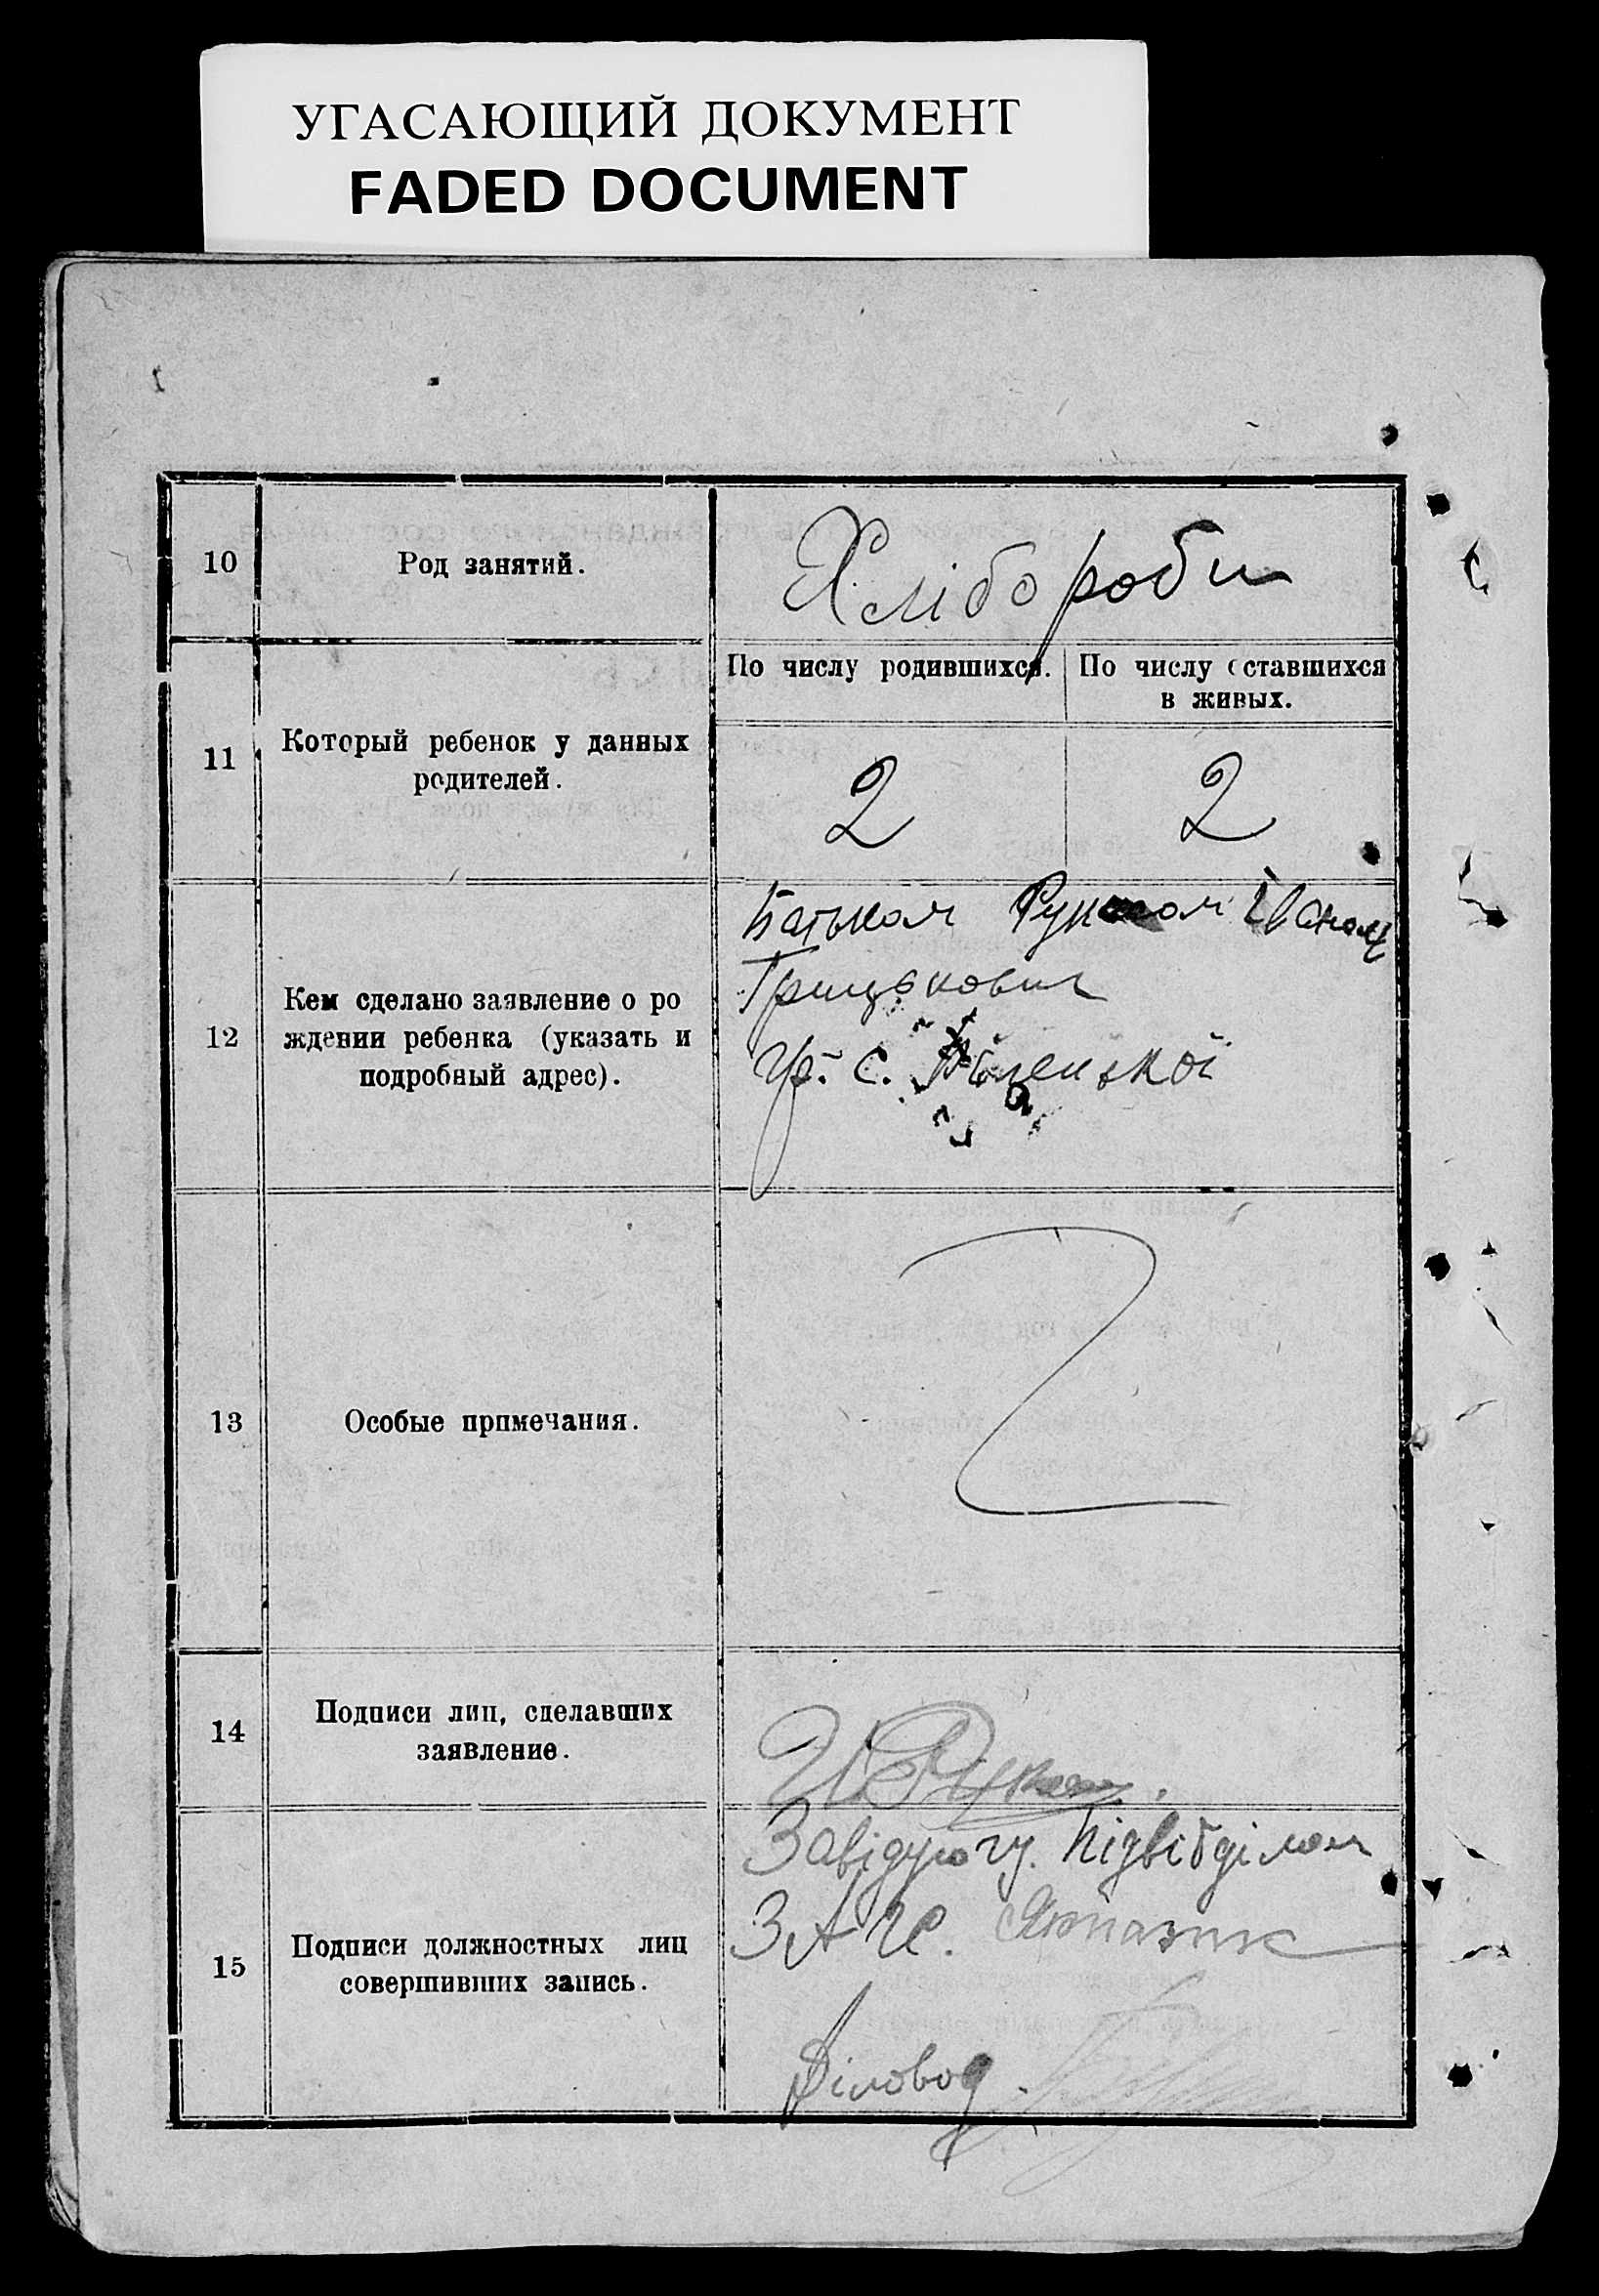 УГАСАЮЩИЙ ДОКУМЕНТ
FADED DOCUMENT
10
Род занятий.
Хлібороби
11
Который ребенок у данных
родителей.
По числу родившихся.
По числу оставшихся
в живых.
2
2
12
Кем сделано заявление о ро
ждении ребенка (указать и
подробный адрес).
Батьком Іваном
Грицьковим
Гр. с.
13
Особые примечания.
14
Подписи лиц, сделавших
заявление.
15
Подписи должностных лиц
совершивших запись.
Завідуюч. Підвідділом
ЗАГС.
Діловод